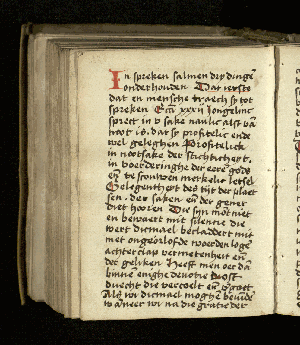 In spreken salmen drÿ dingē
onderhouden Dat ierste
dat en mensche traech sy tot
spreken Ecc̄i xxxii iongelinc
sprect in v sake naulic alst vā
noot is. dat sy profitelic ende
wel geleghen Profitelick
in nootsake der stichticheit,
in voerderinghe der eere gods
eñ te scouwen merkelic letsel
Gelegentheit des tijt der plaet
sen. der saken eñ der gener
diet hooren Die syn mōt niet
en bewaert mit silencie die
wert dicmael berladdert mit
met ongeorlofde woerden loge
achterclap vermetenheit eñ
der geliken Heeft men oec dā
binnē enighe devotie troost
duecht die vercoelt eñ v̄groet
Alsū wi dicmael moghē bevindē
wāneer wi na die gratie der